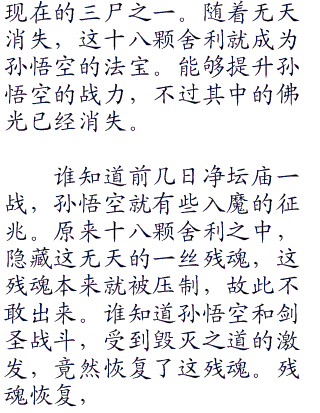 现在的三尸之一。随着无天
消失，这十八颗舍利就成为
孙悟空的法宝。能够提升孙
悟空的战力，不过其中的佛
光已经消失。
谁知道前几日净坛庙一
战，孙悟空就有些入魔的征
兆。原来十八颗舍利之中，
隐藏这无天的一丝残魂，这
残魂本来就被压制，故此不
敢出来。谁知道孙悟空和剑
圣战斗，受到毁灭之道的激
发，竟然恢复了这残魂。残
魂恢复，